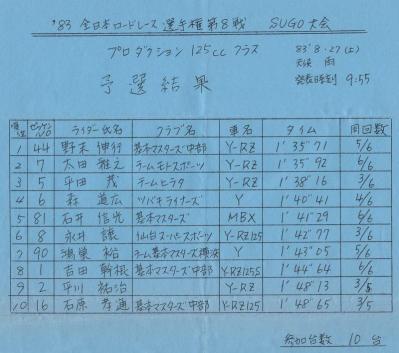 '83 全日本ロードレース選手権第8戦 SUGO大会
プロダクション 125cc クラス
83'8・27(土)
天候 雨
予選結果
発表時刻 9:55
順位 ゼッケンNO ライダー氏名 クラブ名 車名 タイム 周回数
1 44 野末 伸行 基本マスターズ中部 Y-RZ 1'35"71 5/6
2 7 太田 雅之 チームモトスポーツ Y-RZ 1'35"92 6/6
3 5 平田 茂 チームヒラタ Y-RZ 1'38"16 3/6
4 6 森 直広 ツバキライナーズ Y 1'40"41 4/6
5 81 石井 信光 基本マスターズ MBX 1'41"29 6/6
6 8 永井 譲 仙台スーパースポーツ Y-RZ125 1'42"77 3/6
7 90 鴻巣 裕 チーム基本マスターズ横浜 Y 1'43"05 5/6
8 1 吉田 幹根 基本マスターズ中部 Y-RZ125S 1'44"64 6/6
9 2 平川 祐治 Y-RZ 1'48"13 3/5
10 16 石原 孝通 基本マスターズ中部 Y-RZ125 1'48"65 3/5
参加台数 10台